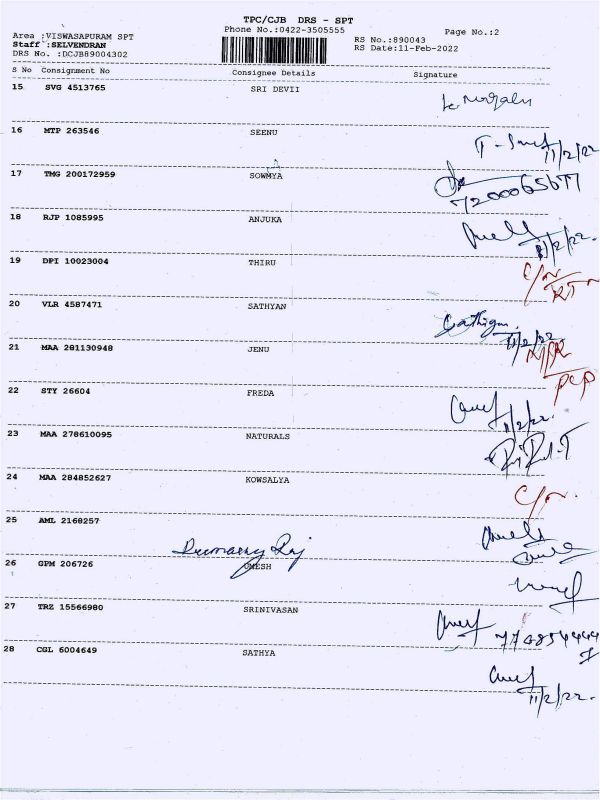 TPC/CJB DRS - SPT
Phone No.:0422-3505555
Page No.:2
Area :VISWASAPURAM SPT
RS No.:890043
Staff :SELVENDRAN
RS Date:11-Feb-2022
DRS No. :DCJB89004302
S No Consignment No Consignee Details Signature
15 SVG 4513765 SRI DEVII
16 MTP 263546 SEENU
11/2/22
17 TMG 200172959 SOWMYA
18 RJP 1085995 ANJUKA
11/2/22.
19 DPI 10023004 THIRU
C/N
RTN
20 VLR 4587471 SATHYAN
11/2/22
21 MAA 281130948 JENU
PCP
22 STY 26604 FREDA
11/2/22.
23 MAA 278610095 NATURALS
24 MAA 284852627 KOWSALYA
C/N.
25 AML 2168257
26 GPM 206726 UMESH
27 TRZ 15566980 SRINIVASAN
28 CGL 6004649 SATHYA
11/2/22.